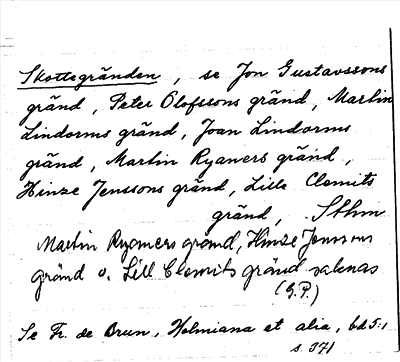 Skottegränden, se Jon Gustavssons
gränd, Peter Olofssons gränd, Martin
Lindorms gränd, Joan Lindorms
gränd, Martin Ryaners gränd,
Hinze Jenssons gränd, Lille Clemits
gränd, Sthm
Martin Ryaners gränd, Hinze Jenssons
gränd o. Lill Clemits gränd saknas
(G.P.)
Se Fr. de Brun, Holmiana et alia, bd 5:1
s. 371